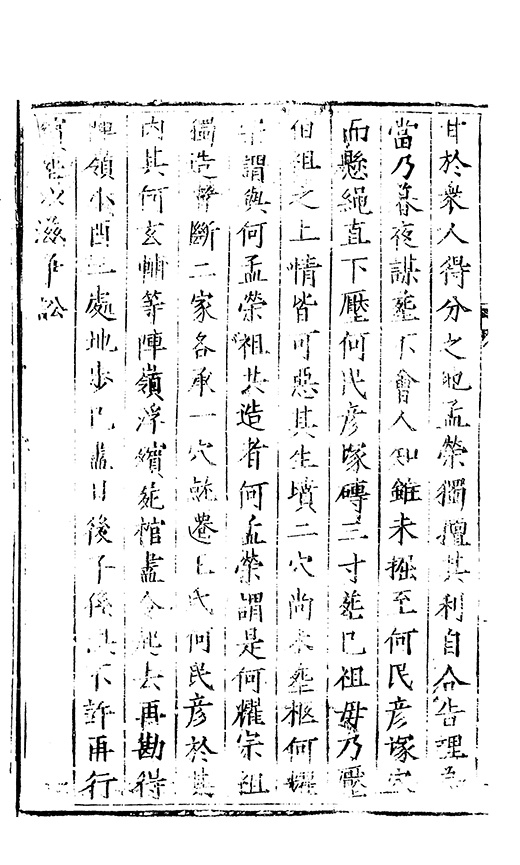 甘於衆人得分之地孟榮獨擅其利自合告理為
當乃暮夜謀塟不會人知雖未掘至何民彦塚穴
而懸繩直下壓何民彦塚磚三寸塟已祖毋乃壓
伯祖之上情皆可惡其生墳二穴尚未塟柩何耀
宗謂與何孟榮祖共造者何孟榮謂是何耀宗祖
獨造 斷二家各承一穴 遷 何民彦於其
内其何玄輔等陣嶺浮殯 棺盡令起去再勘得
陣嶺小酉三處地步已盡日後子係 不許再行
 滋爭訟